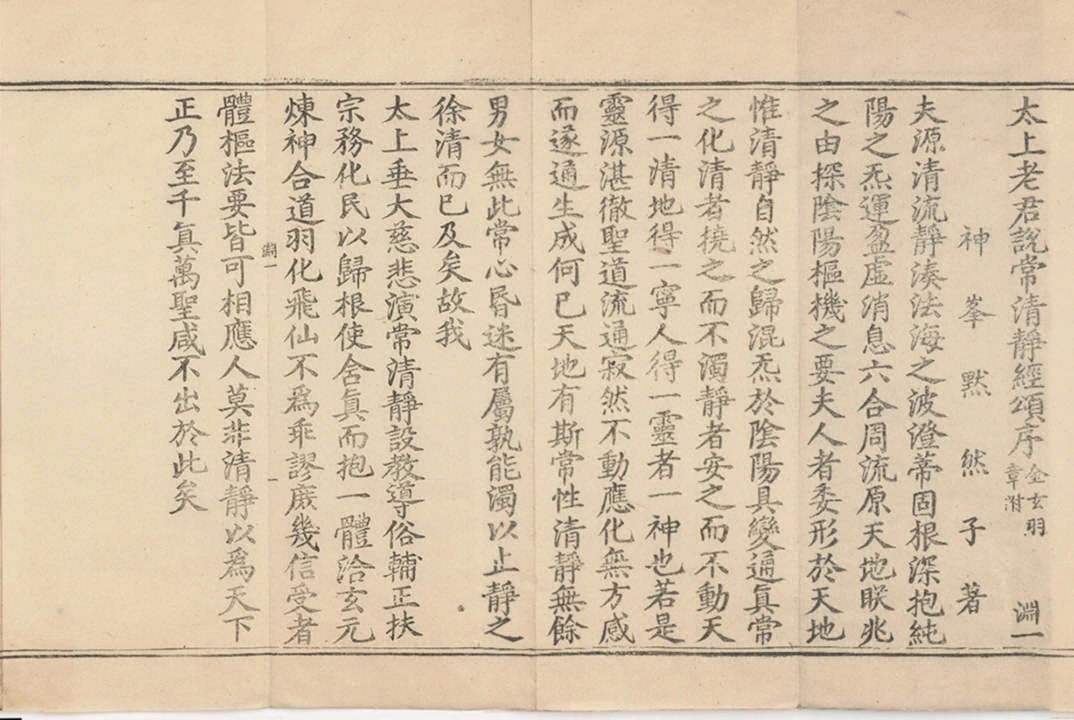 太上老君說常清靜經頌序 金玄羽章附 淵一
神峯默然子著
夫源清流靜湊法海之波澄蒂固根深抱純
陽之炁運盈虛消息六合周流原天地眹兆
之由探陰陽樞機之要夫人者委形於天地
惟清靜自然之歸混炁於陰陽具變通真常
之化清者撓之而不濁靜者安之而不動天
得一清地得一寧人得一靈者一神也若是
靈源湛徹聖道流通寂然不動應化無方感
而遂通生成何已天地有斯常性清靜無餘
男女無此常心昏迷有屬孰能濁以止靜之
徐清而已及矣故我
太上垂大慈悲演常清靜設教導俗輔正扶
宗務化民以歸根使舍真而抱一體洽玄元
煉神合道羽化飛仙不為乖謬庶幾信受者
淵一
一
體樞法要皆可相應人莫非清靜以為天下
正乃至千真萬聖咸不出於此矣